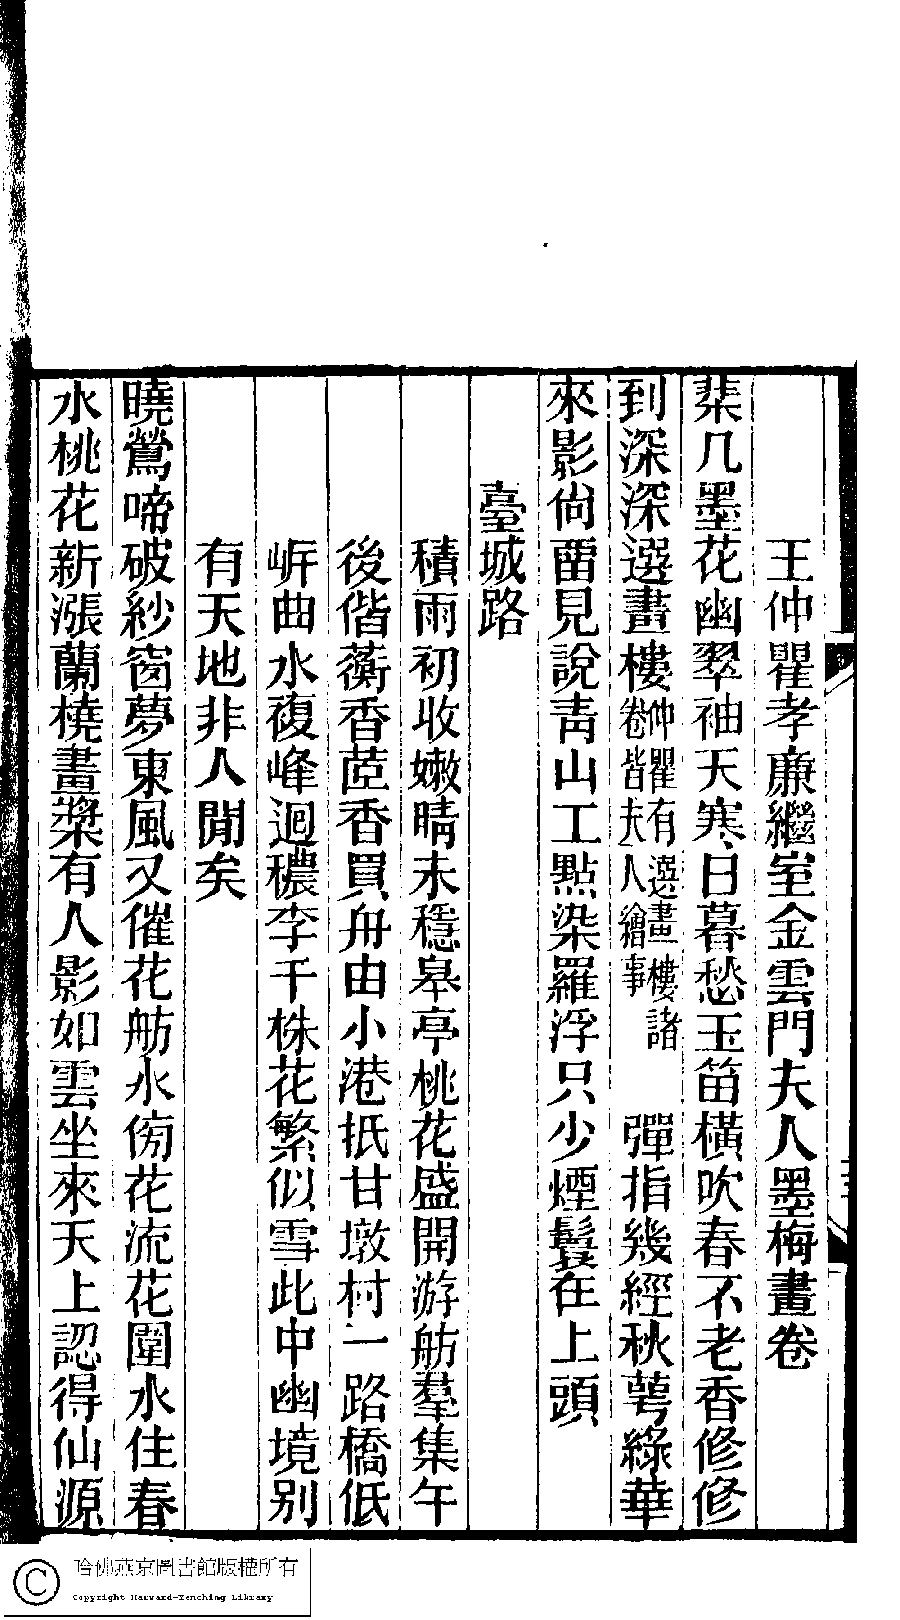 王仲瞿孝廉繼室金雲門夫人墨梅畫卷
棐几墨花幽翠袖天寒日暮愁玉笛橫吹春不老香修修
到深深選畫樓仲瞿有選畫樓諸卷皆夫人繪事 彈指幾經秋萼綠華
來影尙畱見說靑山工點染羅浮只少煙鬟在上頭
臺城路
積雨初收嫩晴未穩皋亭桃花盛開游舫羣集午
後偕蘅香茝香買舟由小港抵甘墩村一路橋低
岓曲水複峰迴穠李千株花繁似雪此中幽境別
有天地非人閒矣
曉鶯啼破紗窗夢東風又催花舫水傍花流花圍水住春
水桃花新漲蘭橈畫槳有人影如雲坐來天上認得仙源
哈佛燕京圖書館版權所有
Copyright Harvard-Yenching Library